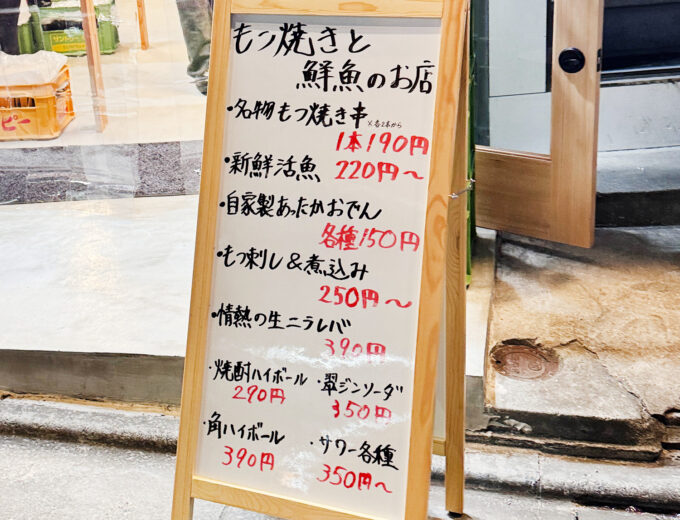 もつ焼きと
鮮魚のお店
・名物もつ焼き串 ※各2本から
1本190円
・新鮮活魚 220円〜
・自家製あったかおでん
各種150円
・もつ刺し&煮込み
250円〜
・情熱の生ニラレバ
390円
・焼酎ハイボール ・翠ジンソーダ
290円 350円
・角ハイボール ・サワー各種
390円 350円〜
ピー